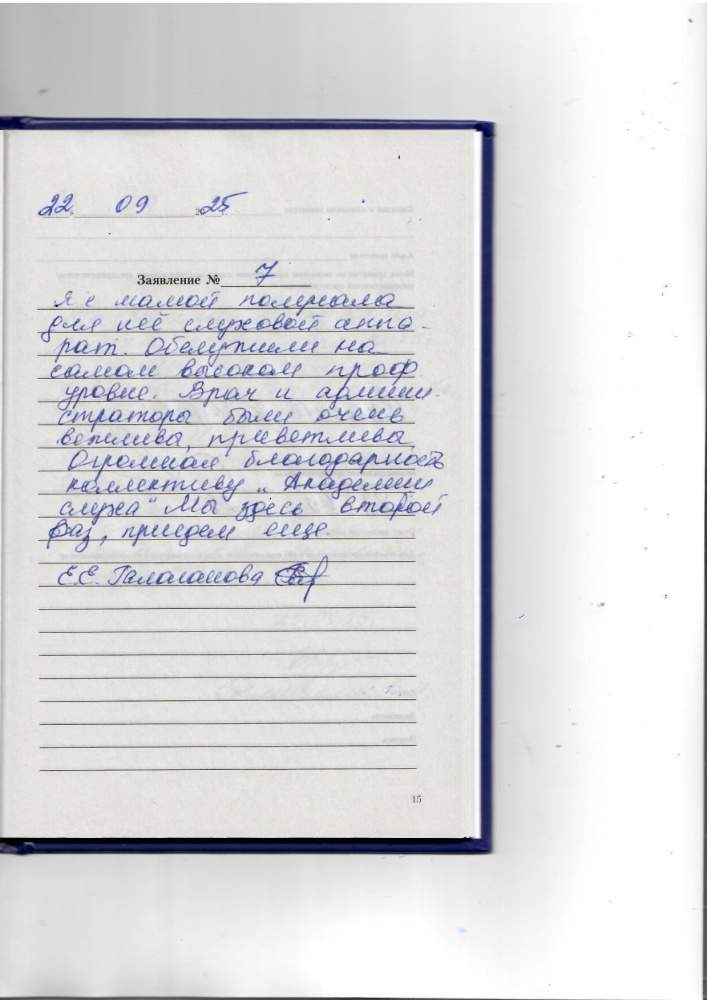 22. 09 2025
Заявление № 7
Я с мамой получала
для неё слуховой аппа-
рат. Обслужили на
самом высоком проф.
уровне. Врач и админи-
страторы были очень
вежливы, приветливы
Огромная благодарность
коллективу „Академии
слуха" Мы здесь второй
раз, придем еще.
Е.Е. Галаганова
15